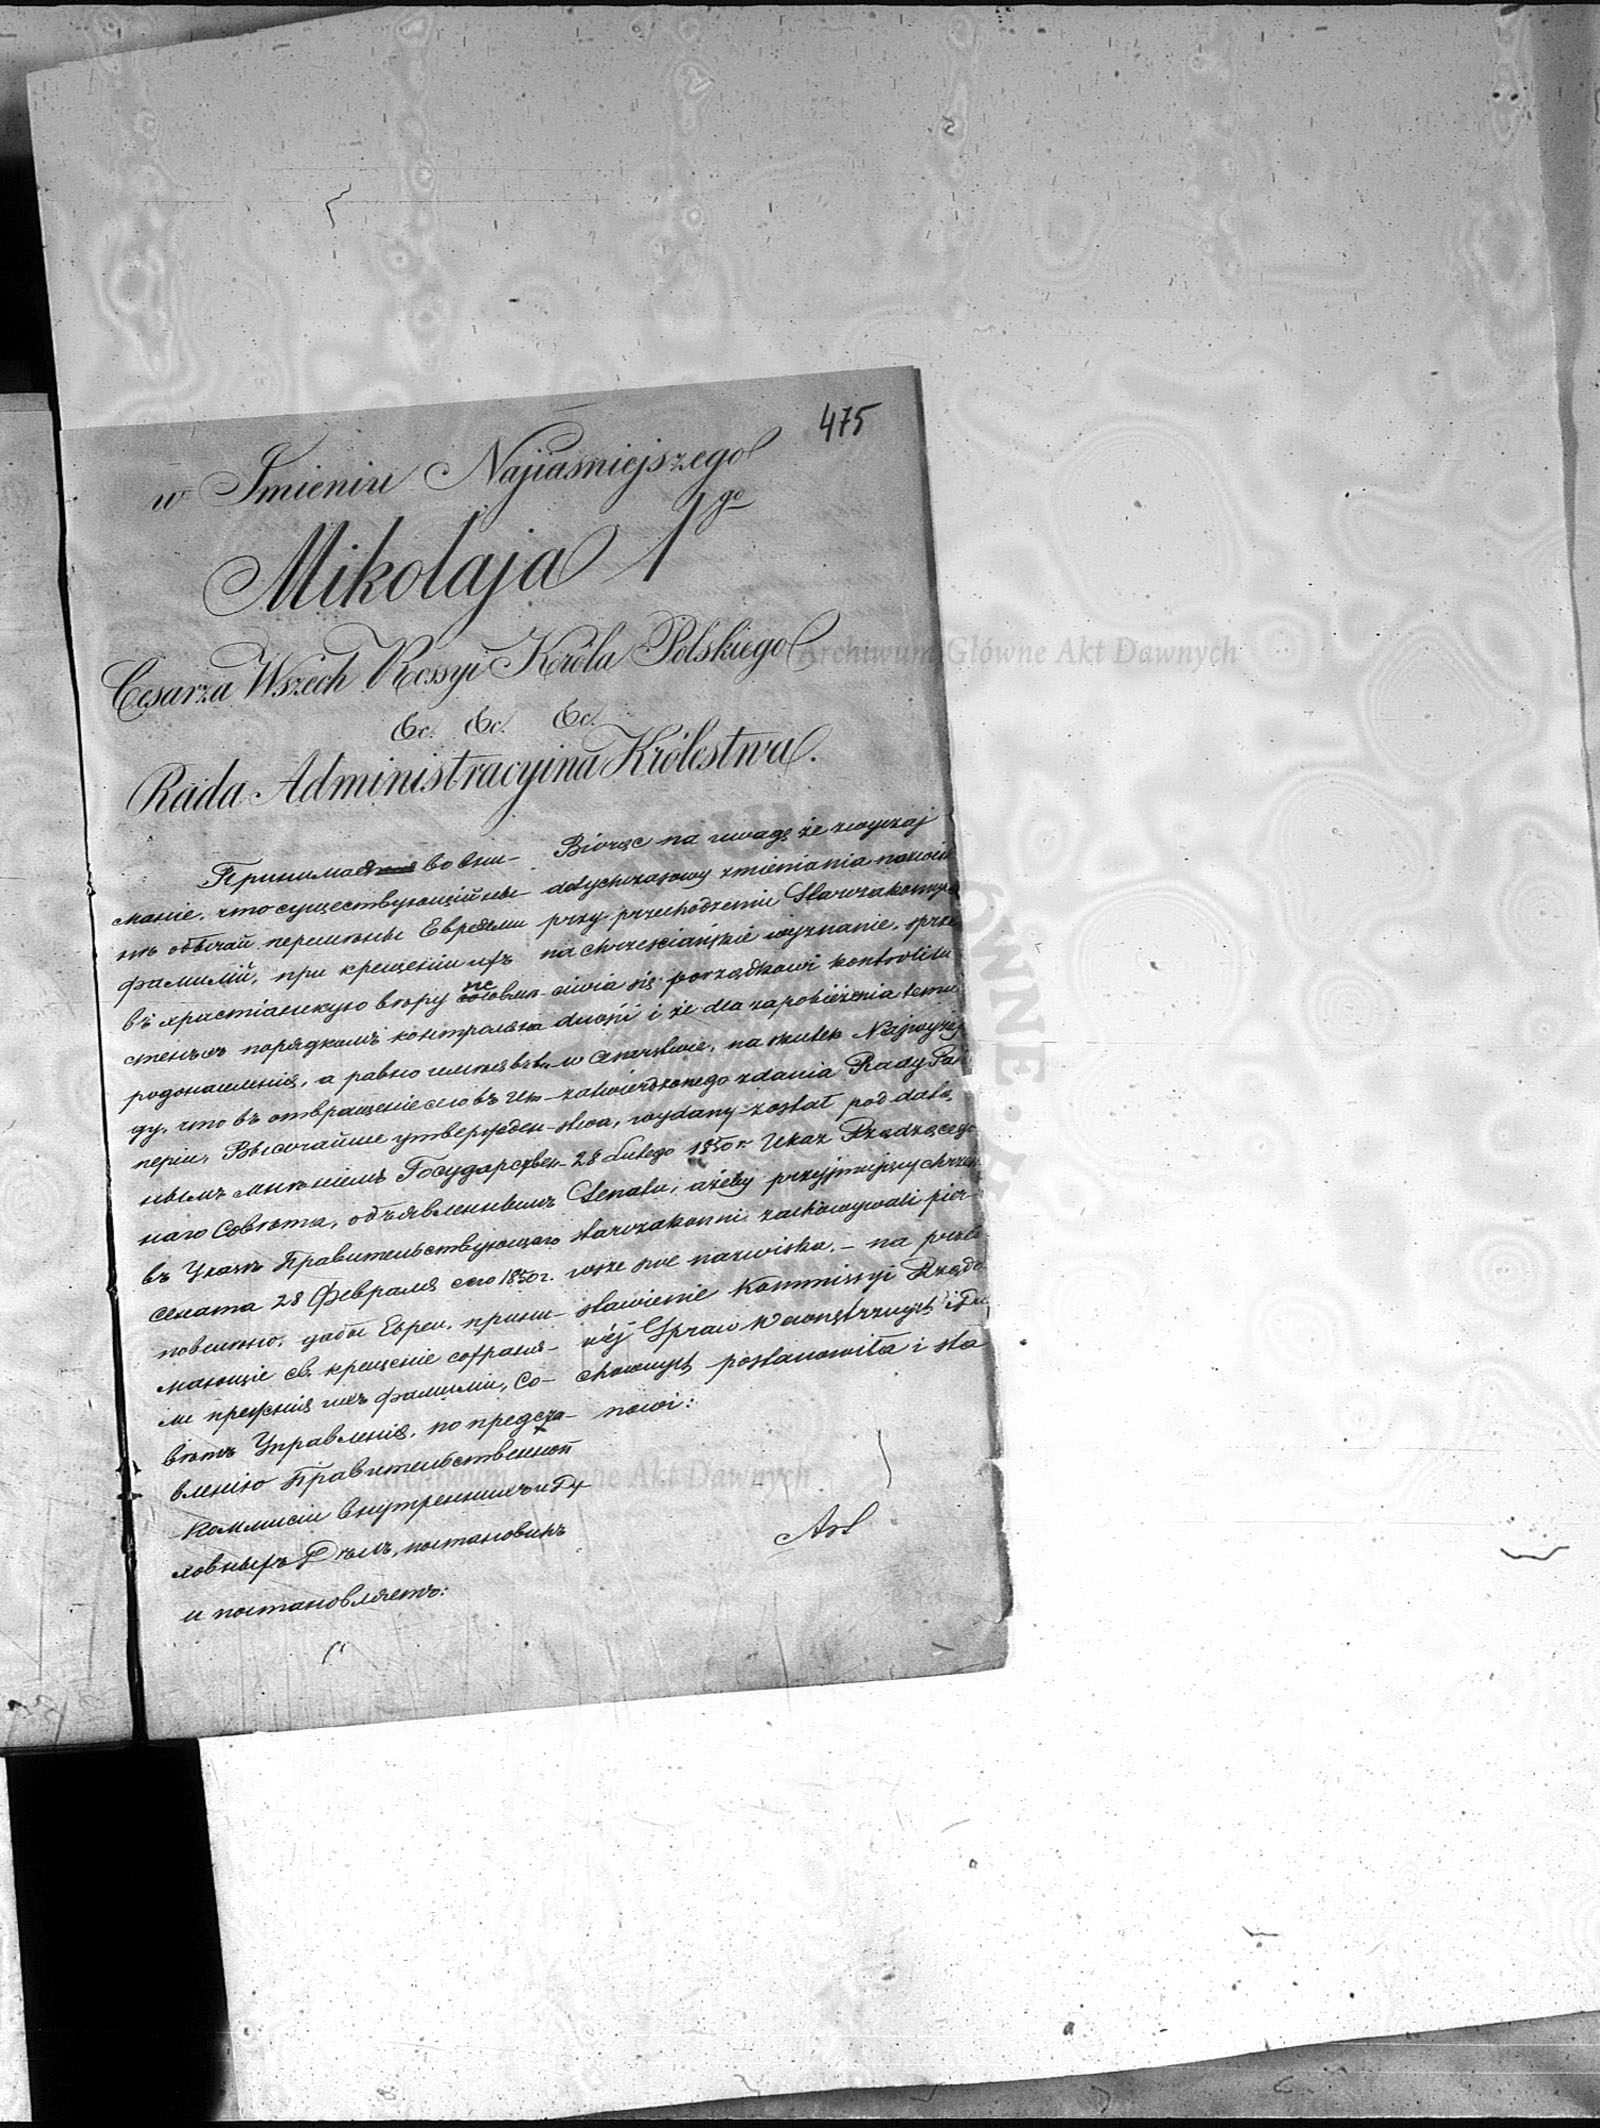 475
w Imieniu Najiasniejszego
Mikołaja 1go
Cesarza Wszech Rossyi Króla Polskiego
&c. &c. &c.
Rada Administracyina Królestwa.
Принимая во вни-
маніе, что существующій ны-
нѣ обычай перемѣны Евреями
фамилій, при крещеніи ихъ
въ христіанскую вѣру не совмѣ-
стенъ съ порядкомъ контроля на
родонаселенія, а равно имѣя въ ви-
ду, что въ отвращеніе сего въ Им-
періи, Высочайше утвержден-
нымъ мнѣніемъ Государствен-
наго Совѣта, объявленнымъ
въ Указѣ Правительствующаго
Сената 28 Февраля сего 1850 г.
повелѣно, дабы Евреи, прини-
мающіе св. крещеніе сохраня-
ли прежнія ихъ фамиліи, Со-
вѣтъ Управленія, по предста-
вленію Правительственной
Коммисіи Внутреннихъ и Ду-
ховныхъ Дѣлъ, постановилъ
и постановляетъ:
Biorąc na uwagę że zwyczaj
dotychczasowy zmieniania nazwisk
przy przechodzeniu Starozakonnych
na chrześciańskie wyznanie, sprze-
ciwia się porządkowi kontroli lu
dności i że dla zapobieżenia temu
w Cesarstwie, na skutek Najwyżej
zatwierdzonego zdania Rady Pań
stwa, wydany został pod datą
28 Lutego 1850 r. Ukaz Rządzącego
Senatu, ażeby przyjmujący chrzest
starozakonni zachowywali pier-
wsze swe nazwiska, – na przed
stawienie Kommissyi Rządo
wéj Spraw Wewnętrznych i Du
chownych postanowiła i sta
nowi:
Art
Archiwum Główne Akt Dawnych
Archiwum Główne Akt Dawnych